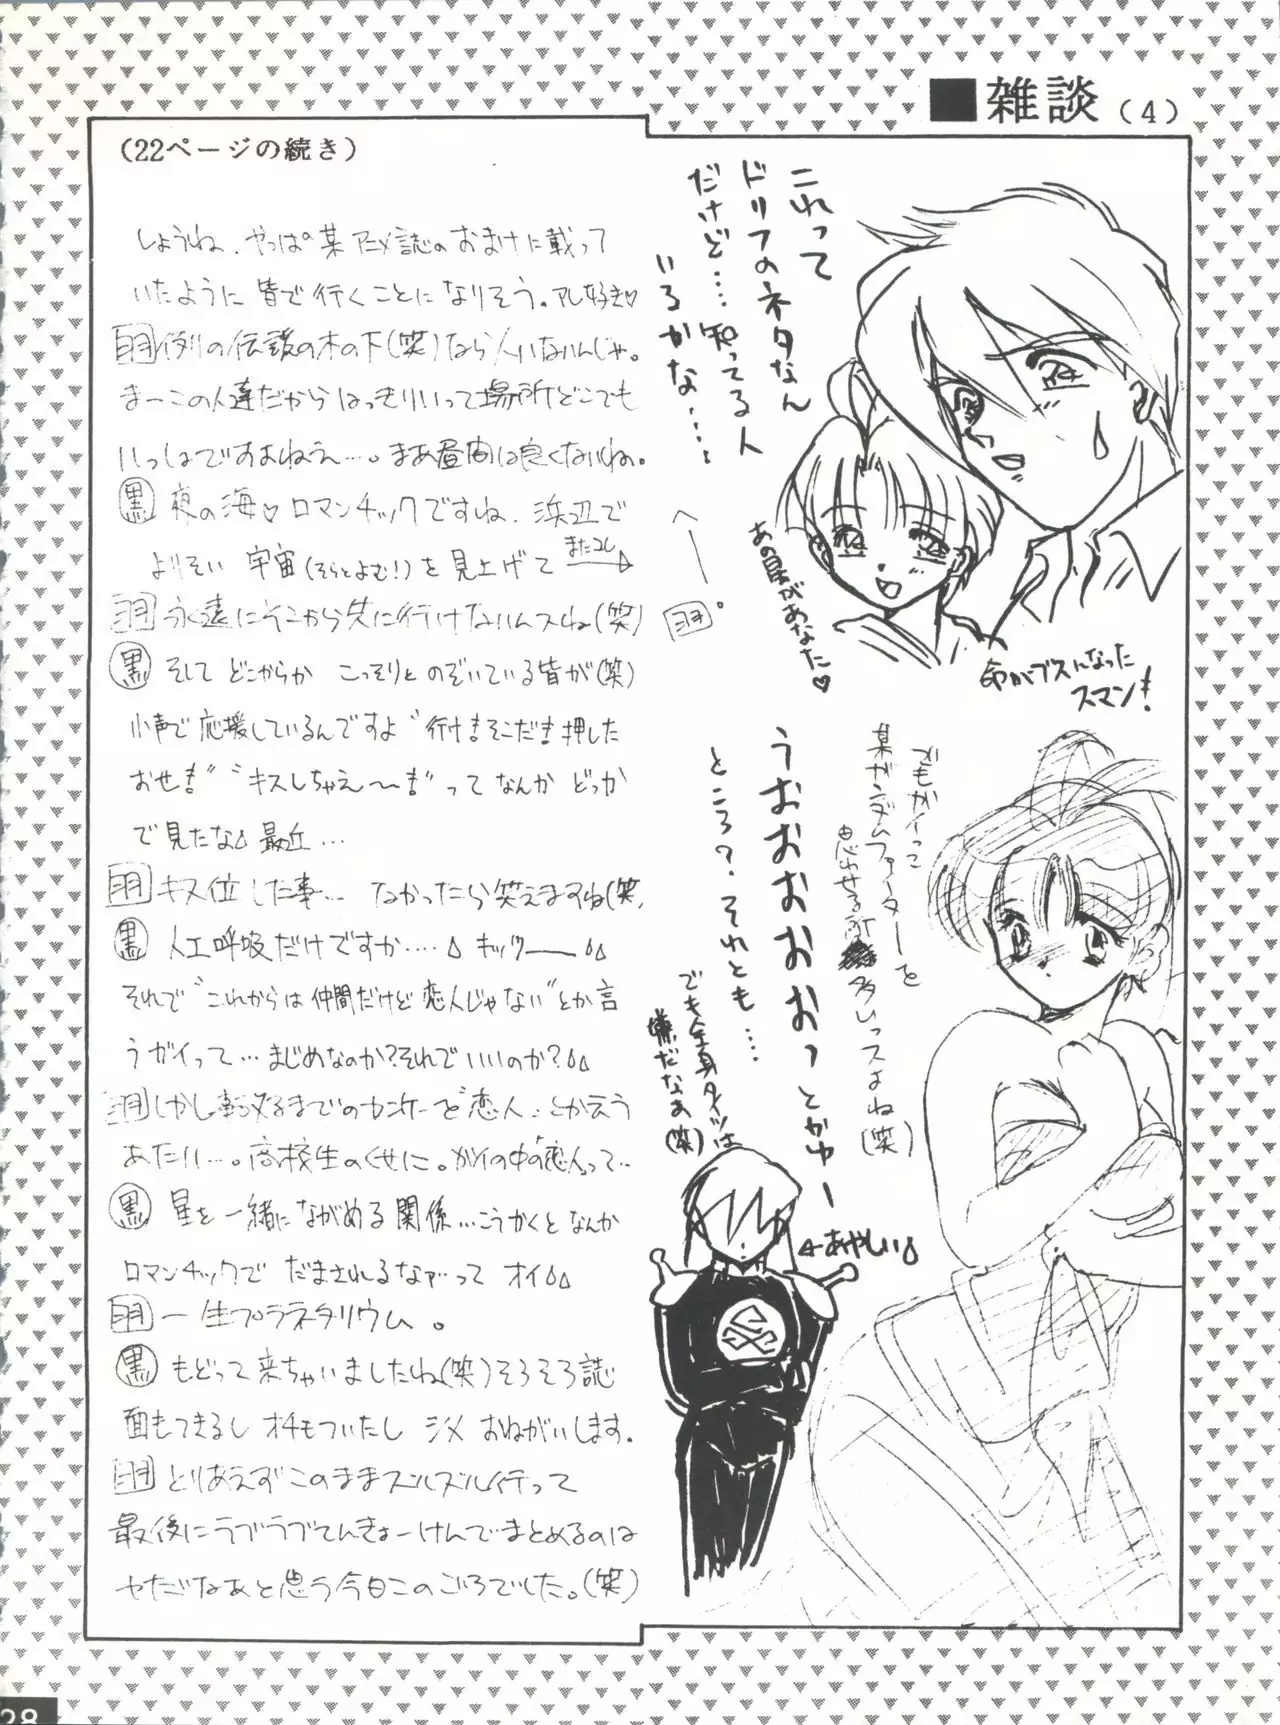 ■雑談（4）
（22ページの続き）
しょうね、やっぱ某アニメ誌のおまけに載って
いたように皆で行くことになりそう。アレ好き♡
羽 例の伝説の木の下(笑)なら人いないんじゃ。
まーこの人達だからはっきりいって場所どこでも
いっしょですおねえ…。まあ昼間は良くないね。
黒 夜の海♡ロマンチックですね、浜辺で
よりそい 宇宙(そらとよむ!)を見上げて
またコレ
羽 永遠にそこから先に行けないんスね(笑)
黒 そして どこからか こっそりとのぞいている皆が(笑)
小声で応援しているんですよ“行け!そこだ!押した
おせ!”“キスしちゃえ〜!”って なんか どっか
で見たな 最近…
羽 キス位した事… なかったら笑えますね(笑)
黒 人工呼吸だけですか…. キッツー——
それで“これからは仲間だけど恋人じゃない”とか言
うガイって…まじめなのか?それでいいのか?
羽 しかし転校するまでのカンケーを“恋人”とか云う
あたり…。高校生のくせに。ガイの中の“恋人”って…
黒 星を一緒にながめる関係…こうかくとなんか
ロマンチックで だまされるなァ…って オイ
羽 一生プラネタリウム。
黒 もどって来ちゃいましたね(笑)そろそろ誌
面もつきるし オチもついたし シメ おねがいします。
羽 とりあえずこのままズルズルイチャって
最後にラブラブてんきょーけんでまとめるのは
ヤだなあと思う今日このごろでした。(笑)
これって
ドリフのネタなん
だけど…. 知ってる人
いるかな…….
へ——羽°
あの星があなた♡
命がブスんなった
スマン!
でもガイって
某ガンダムファイターを
思わせる所多いっスよね(笑)
うおおおおおっとかゆー
ところ?それとも…
でも全身タイツは
嫌だなあ(笑)
←あやしい
28